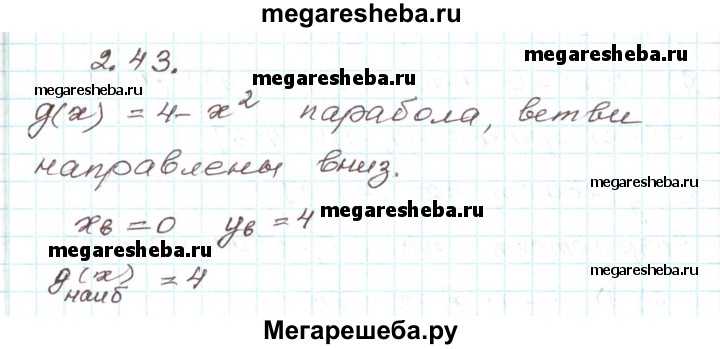 megaresheba.ru
2.43.
megaresheba.ru
megaresheba.ru
g(x) = 4 - x² парабола, ветви
направлены вниз.
megaresheba.ru
xв = 0 yв = 4
megaresheba.ru
megaresheba.ru
g(x) = 4
наиб
megaresheba.ru
Мегарешеба.ру